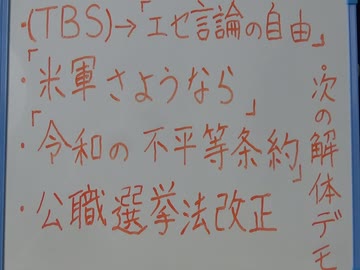 ・(TBS)→「エセ言論の自由」
・「米軍さようなら」
・「令和の不平等条約」
・公職選挙法改正
・次の解体デモ